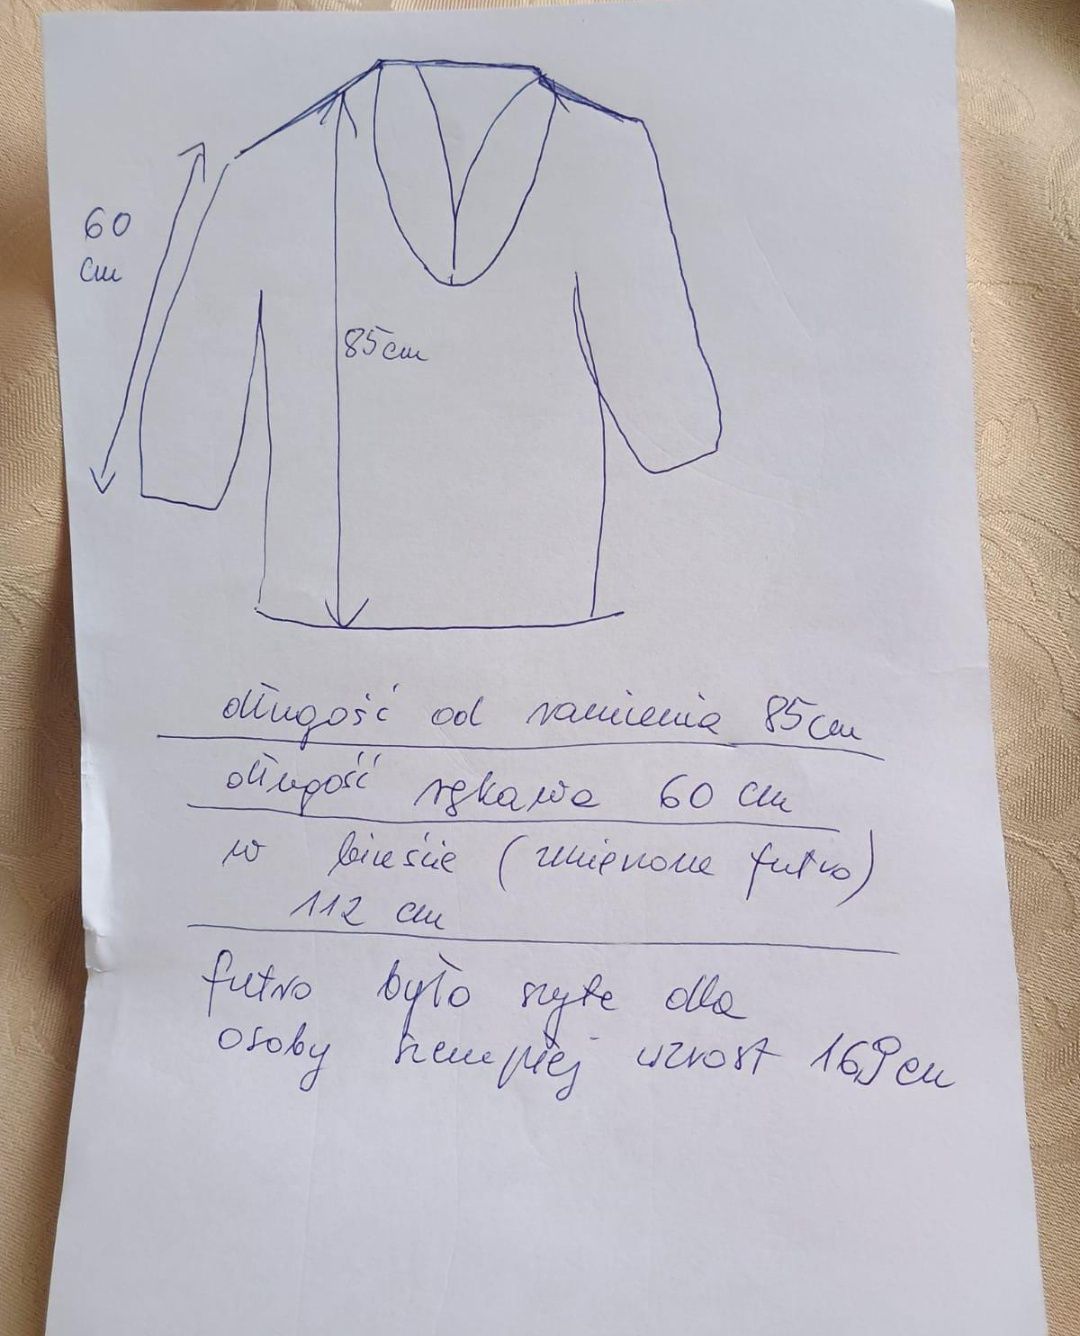 60
cm
85cm
długość od ramienia 85cm
długość rękawa 60 cm
w biuście (zmierzone futro)
112 cm
futro było szyte dla
osoby szczupłej wzrost 169cm